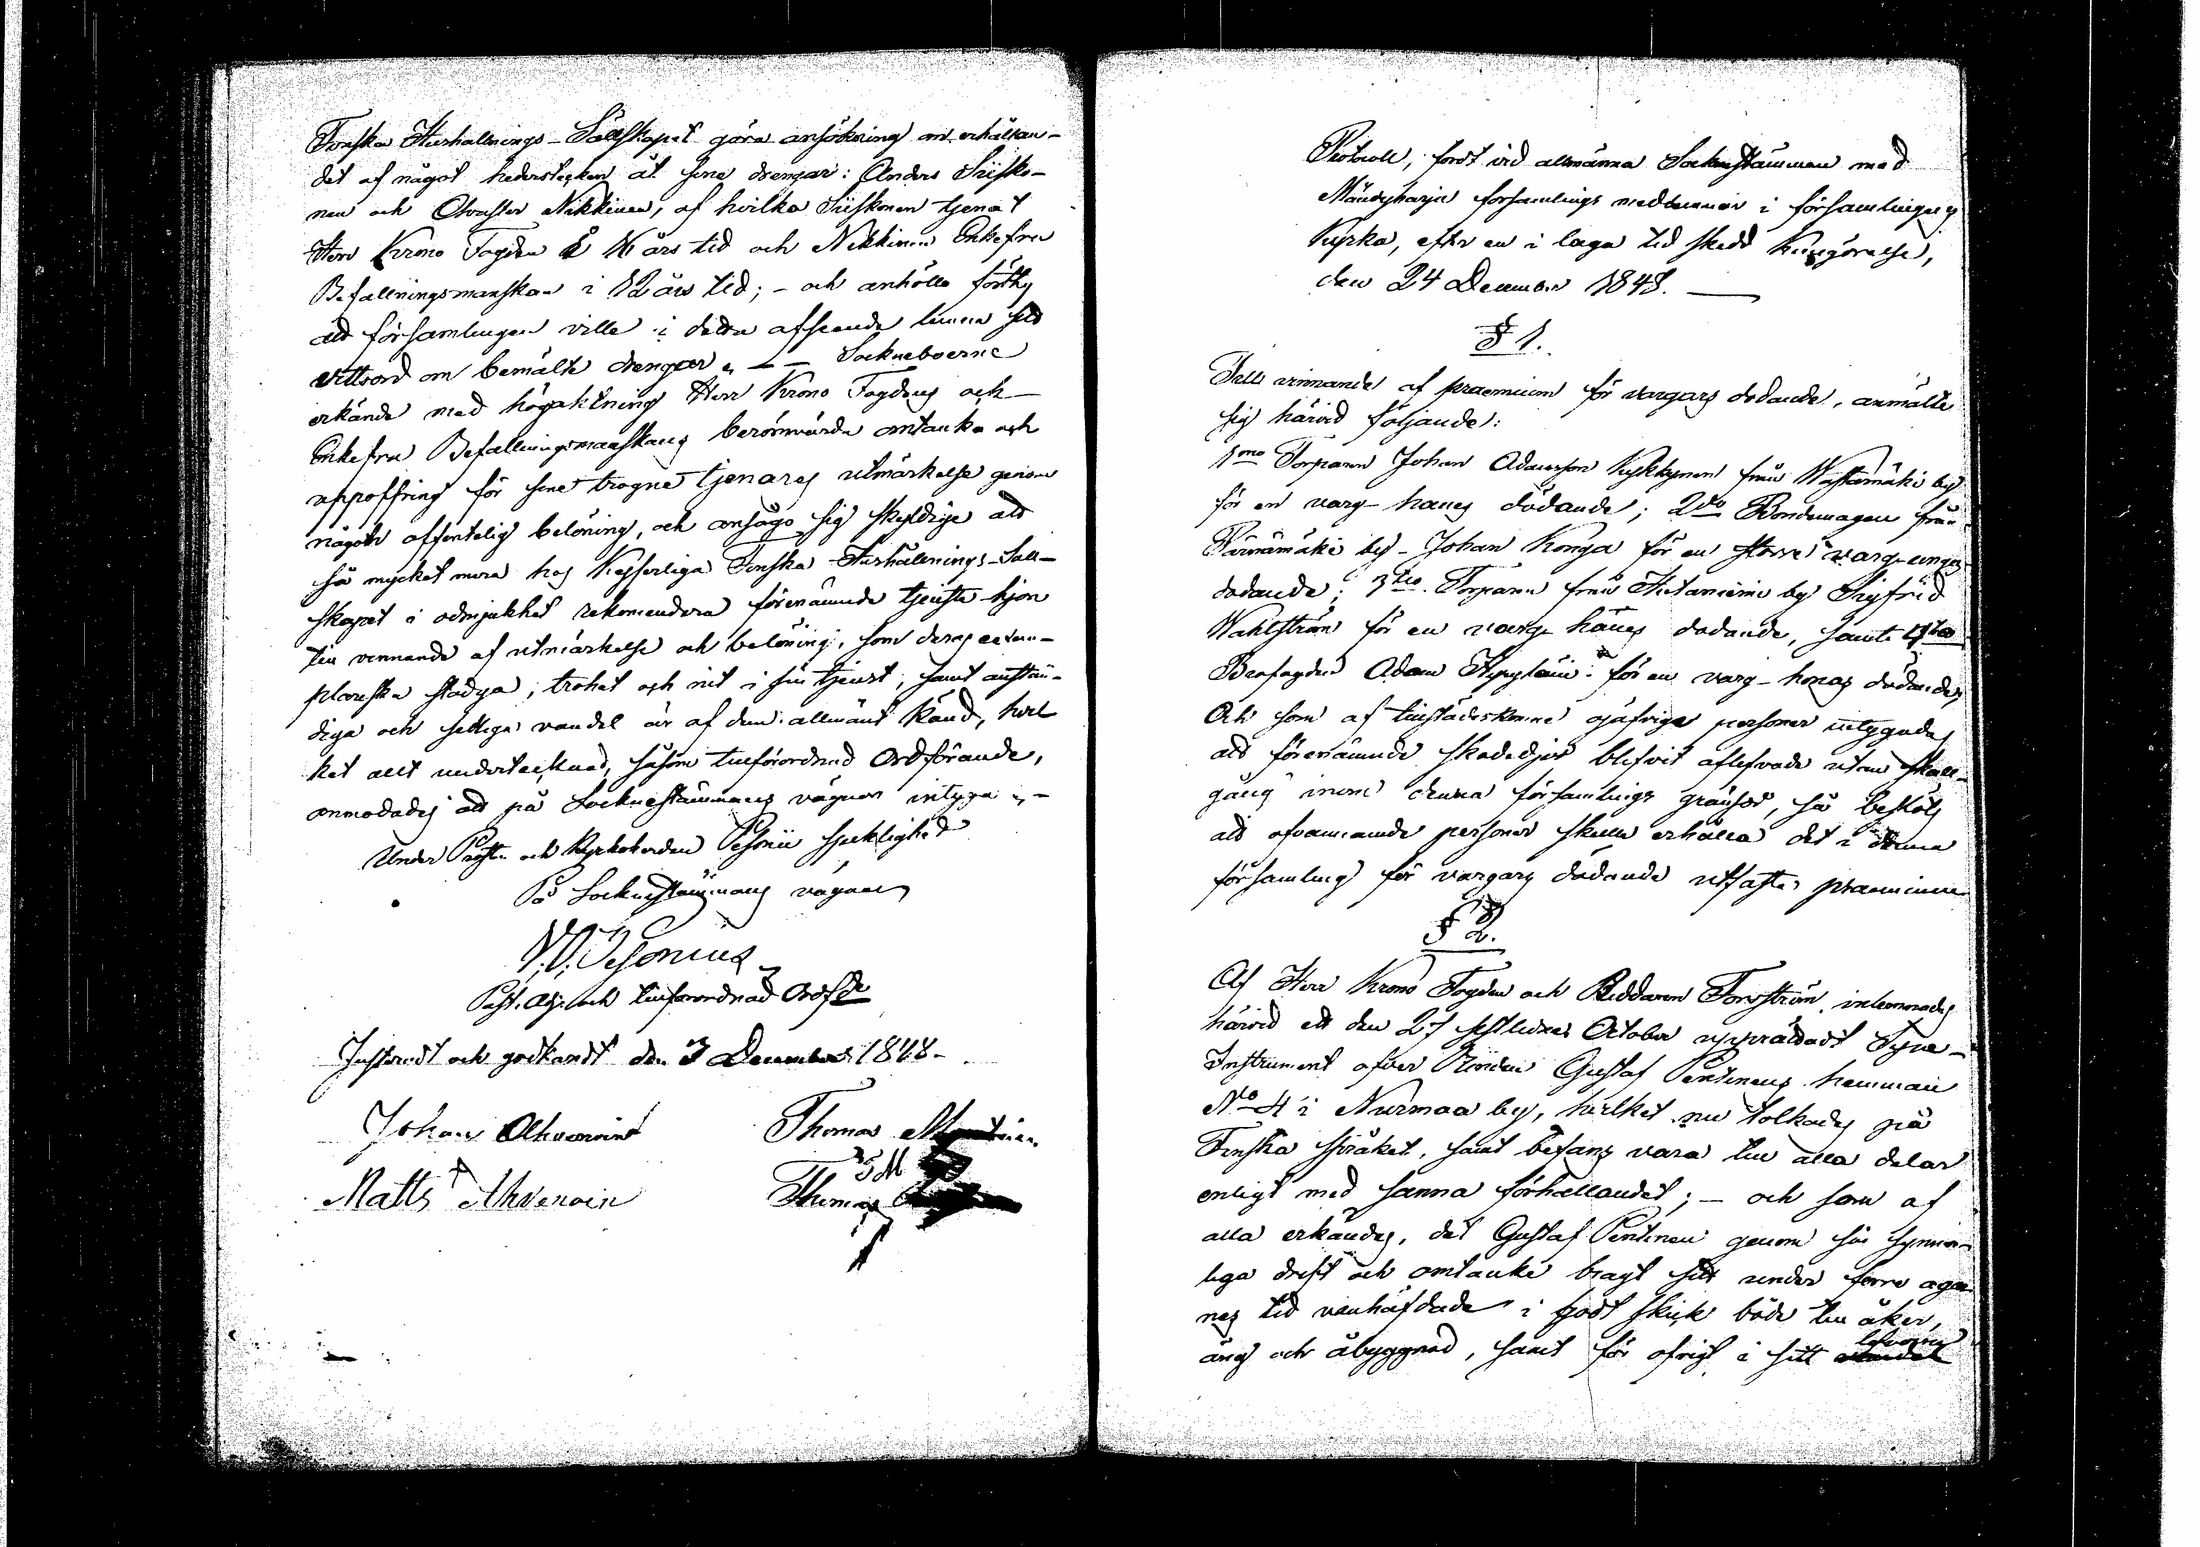 Finska Hushållnings-Sällskapet göra ansökning om erhållan-
det af något hederstecken åt sine drengar: Anders Siisko-
nen och Nikkinen, af hvilka Siiskonen tjenat
Herr Krono Fogden i års tid och Nikkinen Enkefru
Befallningsmanskan i 12 års tid; - och anhöllo förthy
att församlingen ville i detta afseende lemna sitt
vittsord om bemälte drengar. - Sockneboerne
erkände med högaktning Herr Krono Fogdens och
Enkefru Befallningsmanskans berömvärda omtanka och
uppoffring för sine trogne tjenares utmärkelse genom
någon offentelig belöning, och ansågo sig skyldige att
så mycket mera hos Kejserliga Finska Hushållnings-Säll-
skapet i ödmjukhet rekomendera förenämnde tjenste-hjon
till vinnande af utmärkelse och belöning, som deras exem-
plariska stadga, trohet och nit i sin tjenst, samt anstän-
diga och sedliga vandel är af dem allmänt känd, hvil
ket allt undertecknad, såsom tillförordnad Ordförande,
anmodades att på Socknestämmans vägnar intyga. -
Under Prosten och Kyrkoherden Pesonii sjuklighet
På Sockenstämmans vägnar
Pesonius
Past. Adj. och tillförordnad Ordf:de
Justeradt och godkändt den 3 December 1848.-
Johan Ahvenoinen Thomas
Matts Ahvenoin Thomas
Protocoll, fördt vid allmänna Sockenstämman med
Mändyharju församlings medlemmar i församlingens
Kyrka, efter en i laga tid skedd kungörelse,
den 24 December 1848.
§ 1.
Till vinnande af praemium för vargars dödande, anmälte
sig härvid följande:
1mo Torparen Johan Adamsson Kyykkynen från by
för en varg-hanes dödande; 2do Bondemågen från
Pärnämäki by - Johan Konga för en större varg-unges
dödande; 3tio Torparen från Hietaniemi by Sigfrid
Wahlström för en varg-hanes dödande, samt 4to
Brofogden Adam för en varg-honas dödande,
Och som af tillstädeskomne ojäfvige personer intygades
att förenämnde skadedjur blifvit aflifvade utan skall-
gång inom denna församlings gränsor, så beslöts
att ofvannämnde personer skulle erhålla det i denna
församling för vargars dödande utfäste praemium
§ 2.
Af Herr Krono Fogden och Riddaren Forsström inlemnades
härvid ett den 27 sistledne October upprättadt Syne-
Instrument öfver Bonden Gustaf Pentinens hemman
No 4 i Nurmaa by, hvilket nu tolkades på
Finska språket, samt befans vara till alla delar
enligt med sanna förhållandet; - och som af
alla erkändes, det Gustaf Pentinen genom sin synner-
liga drift och omtanke bragt sitt under förre äga-
nes tid vanhäfdade i godt skick både till åker,
äng och åbyggnad, samt för öfrigt i sitt lefverne